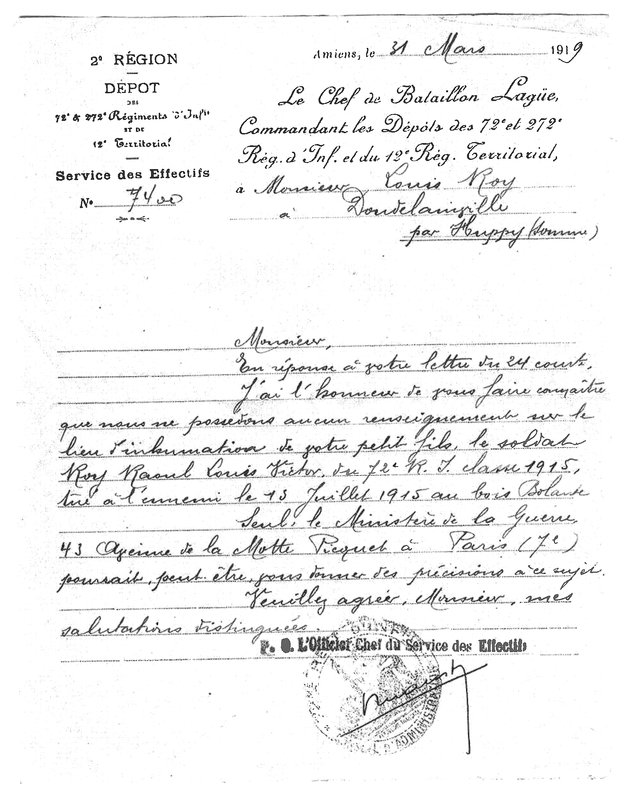 2e RÉGION
DÉPOT
DES
72e & 272e Régiments d'Infie
ET DU
12e Territorial
Service des Effectifs
No 7400
Amiens, le 31 Mars 1919
Le Chef de Bataillon Lagüe,
Commandant les Dépôts des 72e et 272e
Rég. d'Inf. et du 12e Rég. Territorial,
à Monsieur Louis Roy
à Doudelainville
par Huppy (Somme)
Monsieur,
En réponse à votre lettre du 24 court,
J'ai l'honneur de vous faire connaître
que nous ne possedons aucun renseignement sur le
lieu d'inhumation de votre petit fils, le soldat
Roy Raoul Louis Victor, du 72e R. I. classe 1915,
tué à l'ennemi le 13 Juillet 1915 au bois Bolante
Seul, le Ministère de la Guerre,
43 Avenue de la Motte Picquet à Paris (7e)
pourrait, peut être, vous donner des précisions à ce sujet.
Veuillez agréer, Monsieur, mes
salutations distinguées.
P. O. L'Officier Chef du Service des Effectifs
D'ADMINISTRATION